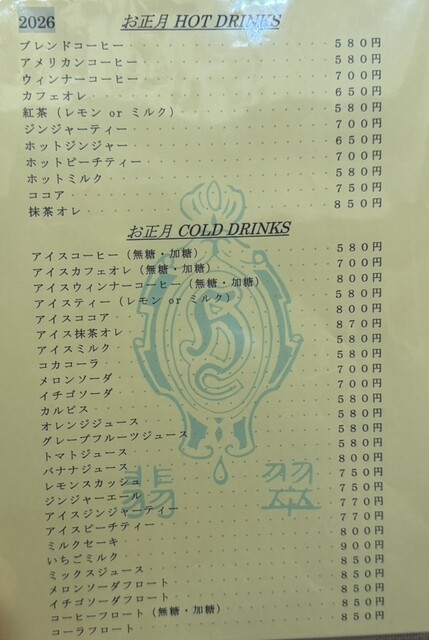 2026
お正月 HOT DRINKS
ブレンドコーヒー 580円
アメリカンコーヒー 580円
ウィンナーコーヒー 700円
カフェオレ 650円
紅茶（レモン or ミルク） 580円
ジンジャーティー 700円
ホットジンジャー 650円
ホットピーチティー 700円
ホットミルク 580円
ココア 750円
抹茶オレ 850円
お正月 COLD DRINKS
アイスコーヒー（無糖・加糖） 580円
アイスカフェオレ（無糖・加糖） 700円
アイスウィンナーコーヒー（無糖・加糖） 800円
アイスティー（レモン or ミルク） 580円
アイスココア 800円
アイス抹茶オレ 870円
アイスミルク 580円
コカコーラ 580円
メロンソーダ 700円
イチゴソーダ 700円
カルピス 580円
オレンジジュース 580円
グレープフルーツジュース 580円
トマトジュース 580円
バナナジュース 800円
レモンスカッシュ 750円
ジンジャーエール 750円
アイスジンジャーティー 770円
アイスピーチティー 770円
ミルクセーキ 800円
いちごミルク 900円
ミックスジュース 850円
メロンソーダフロート 850円
イチゴソーダフロート 850円
コーヒーフロート（無糖・加糖） 850円
コーラフロート 850円
翡翠